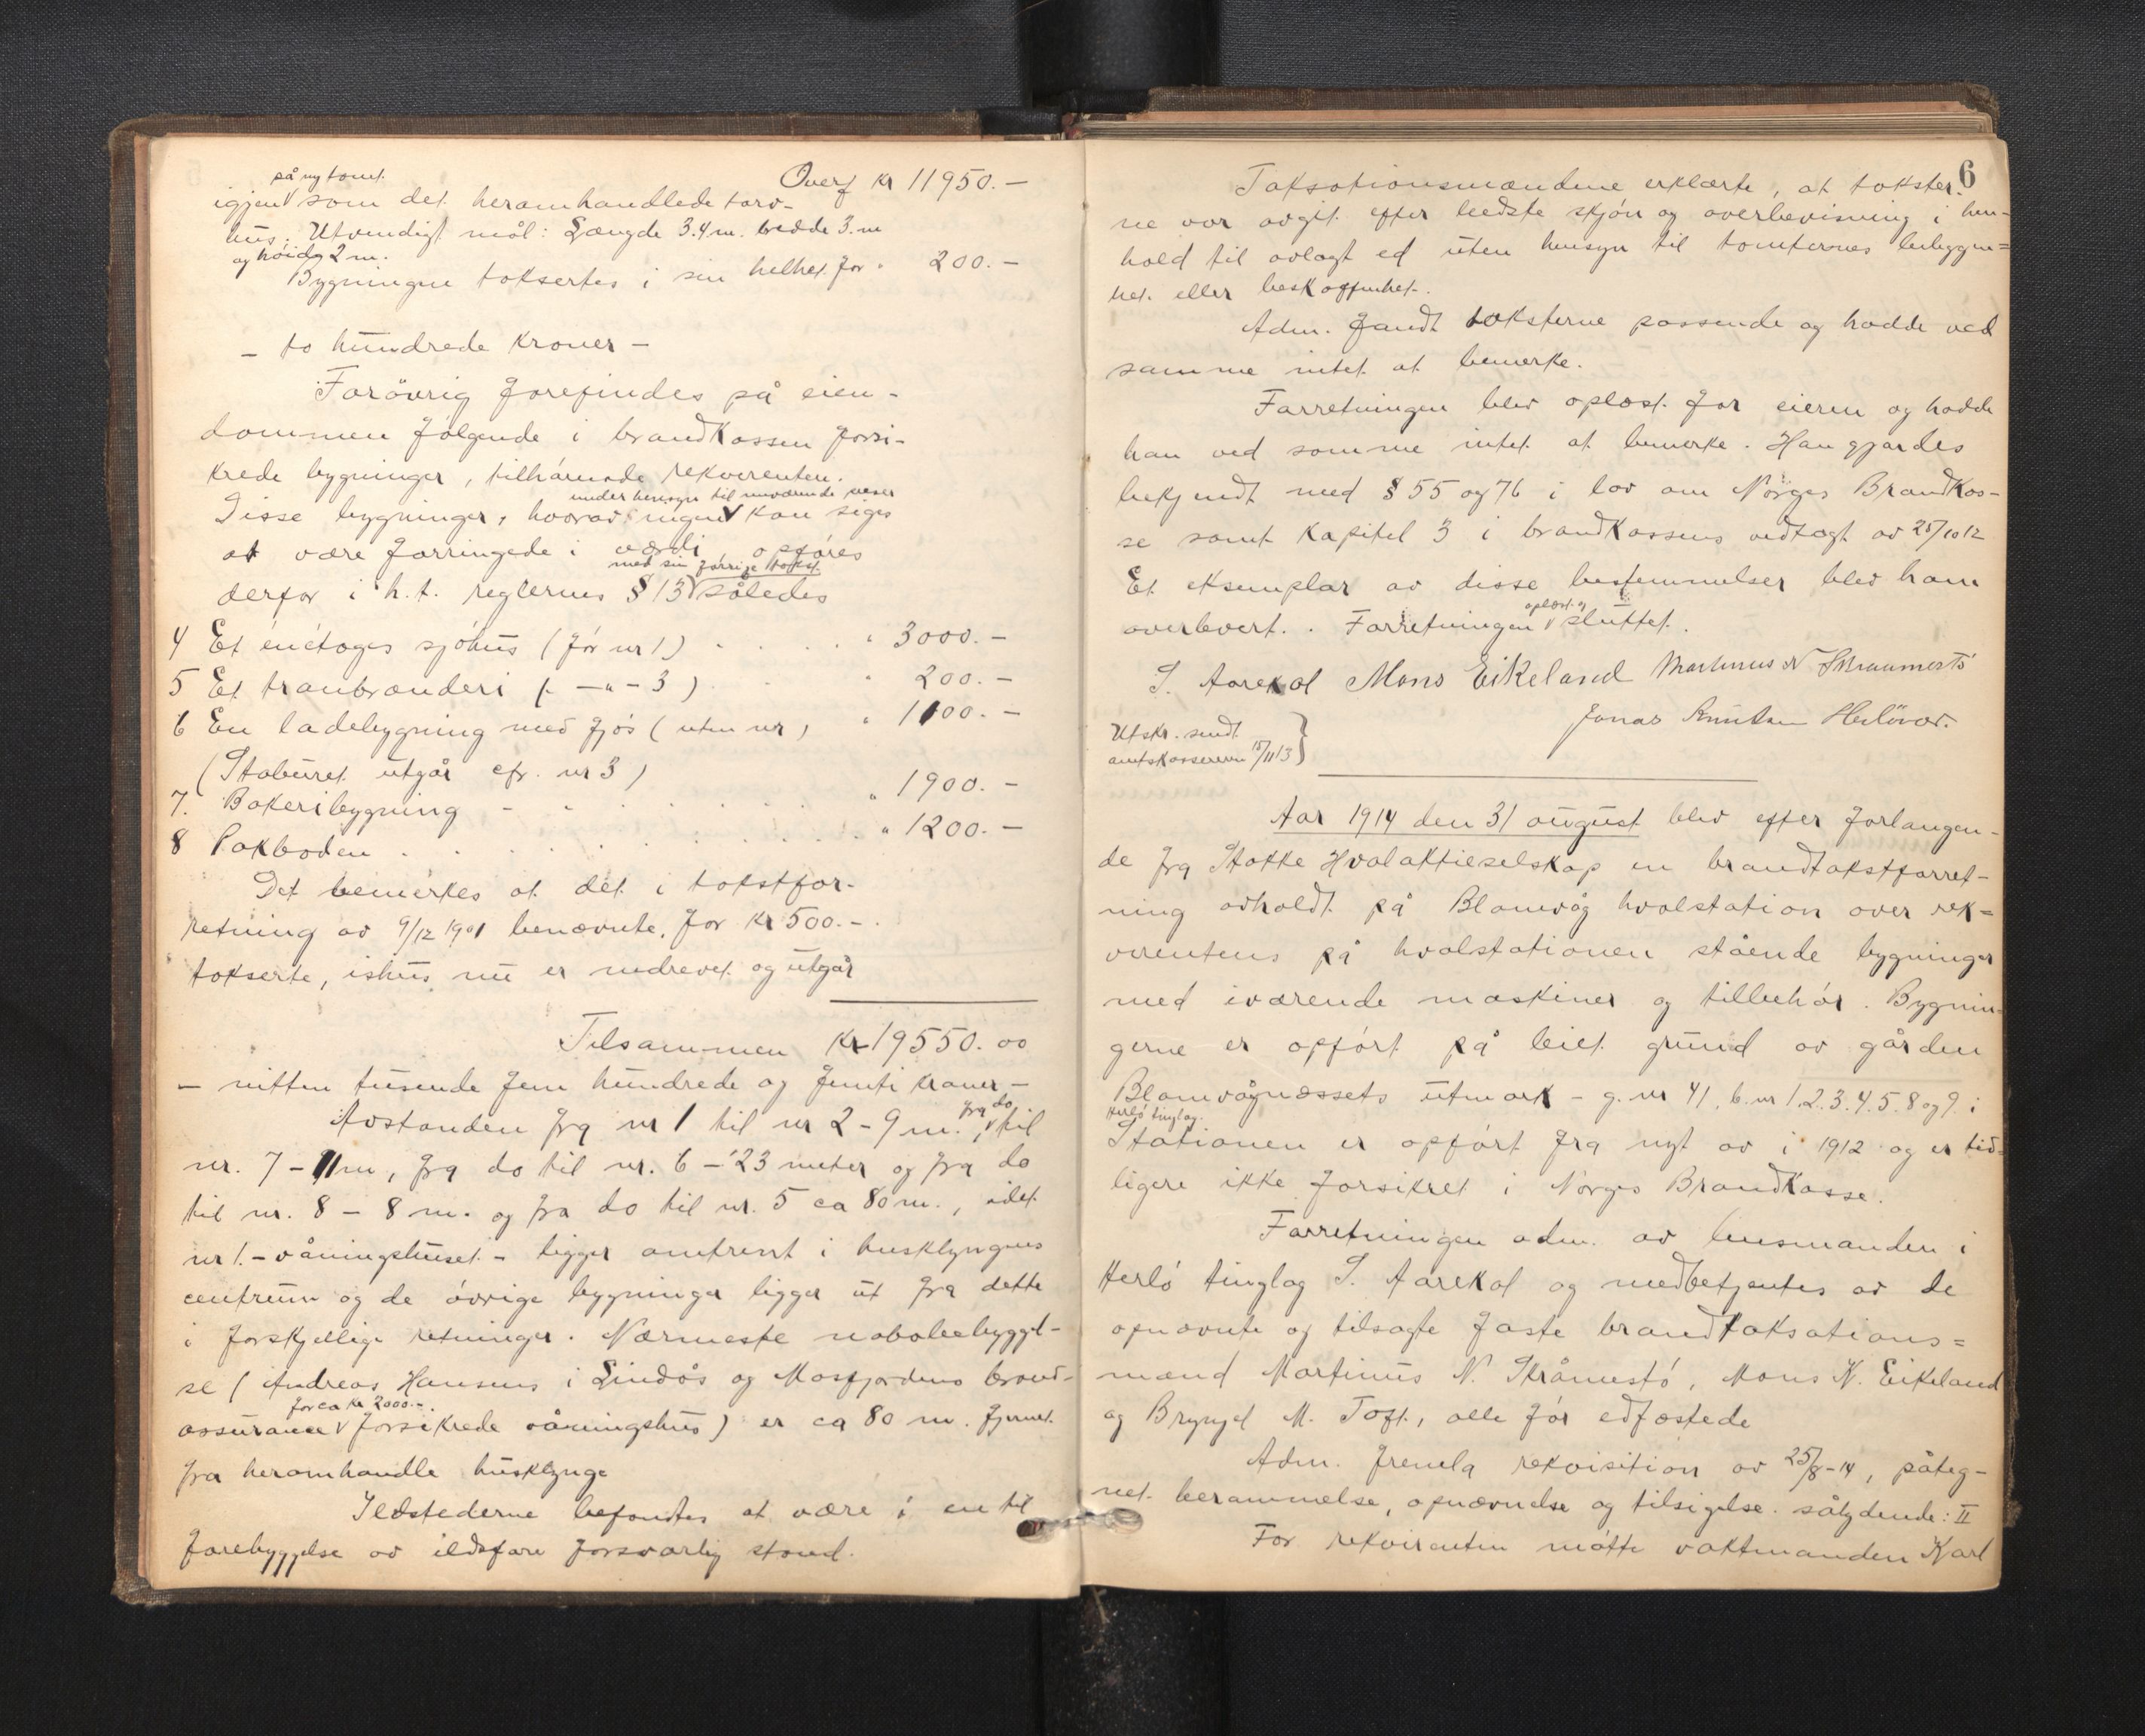 på ny tomt.
Overf kr 11950.—
igjen som det heromhandlede torv-
hus. Utvendigt mål: Længde 3.4 m. bredde 3. m
og høide 2 m.
Bygningen taksertes i sin helhet for " 200.—
— to hundrede kroner —
Forøvrig forefindes på eien-
dommen følgende i brandkassen forsi-
krede bygninger, tilhørende rekvirenten.
under hensyn til nuværende priser
Disse bygninger, hvorav ingen kan siges
at være forringede i værdi, opføres
med sin forrige takst.
derfor i h.t. reglernes § 13 således
4 Et enetages sjøhus (før nr 1) . . . . " 3000.—
5 Et tranbrænderi (. —"— 3) . . " 200.—
6 En ladebygning med fjøs (uten nr) " 1100.—
(Staburet utgår cfr. nr 3)
7. Bakeribygning - . . . . . . " 1900.—
8 Pakboden . . . . . . . . . " 1200.—
Det bemerkes at det i takstfor-
retning av 9/12 1901 benævnte, for kr 500.—
takserte, ishus nu er nedrevet og utgår
Tilsammen kr 19550.00
— nitten tusende fem hundrede og femti kroner —
fra do
Avstanden fra nr 1 til nr 2 - 9 m., til
nr. 7 - 11 m, fra do til nr. 6 - 23 meter og fra do
til nr. 8 - 8 m. og fra do til nr. 5 ca 80 m., idet
nr 1. - våningshuset - ligger omtrent i husklyngens
centrum og de øvrige bygninger ligger ut fra dette
i forskjellige retninger. Nærmeste nabobebyggel-
se (Andreas Hansens i Lindås og Masfjordens brand-
for ca kr 2000.—.
assurance forsikrede våningshus) er ca 80 m. fjernet
fra heromhandle husklynge
Ildstederne befandtes at være i en til
forebyggelse av ildsfare forsvarlig stand.
6
Taksationsmændene erklærte, at takster-
ne var avgit efter bedste skjøn og overbevisning i hen-
hold til avlagt ed uten hensyn til tomternes beliggen=
het eller beskaffenhet.
Adm. fandt taksterne passende og hadde ved
samme intet at bemerke.
Forretningen blev oplæst for eieren og hadde
han ved samme intet at bemerke. Han gjordes
bekjendt med § 55 og 76 i lov om Norges Brandkas-
se samt kapitel 3 i brandkassens vedtægt av 25/10 12
Et eksemplar av disse bestemmelser blev ham
oplæst og
overlevert. . Forretningen sluttet.
S. Aarekol Mons Eikeland Martinus N Skraamestø
Jonas Knutsen Herløvær.
Utskr. sendt
amtskassereren 15/11 13
Aar 1914 den 31 august blev efter forlangen-
de fra Stokke Hvalaktieselskap en brandtakstforret-
ning avholdt på Blomvåg hvalstation over rek=
virentens på hvalstationen stående bygninger
med iværende maskiner og tilbehør. Bygnin-
gerne er opført på leiet grund av gården
Blomvågnæssets utmark - g. nr 41, b. nr 1.2.3.4.5.8 og 9 i
Herlø tinglag.
Stationen er opført fra nyt av i 1912 og er tid=
ligere ikke forsikret i Norges Brandkasse.
Forretningen adm. av lensmanden i
Herlø tinglag S. Aarekol og medbetjentes av de
opnævnte og tilsagte faste brandtaksations=
mænd Martinus N. Skråmestø, Mons N. Eikeland
og Brynjel M. Toft, alle før edfæstede
Adm. fremla rekvisition av 25/8-14, påteg-
net berammelse, opnævnelse og tilsigelse sålydende: II
For rekvirenten møtte vaktmanden Karl